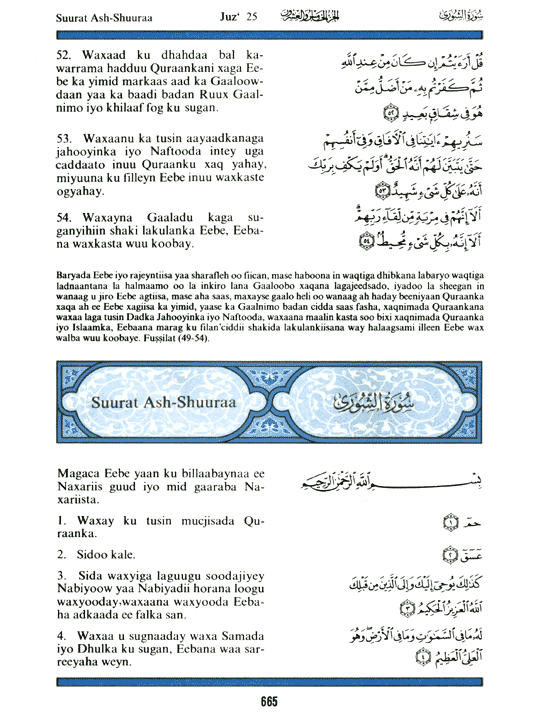 Suurat Ash-Shuuraa Juz' 25 الجزء الخامس والعشرون سُورَةُ الشُّورَىٰ
52. Waxaad ku dhahdaa bal ka-
warrama hadduu Quraankani xaga Ee-
be ka yimid markaas aad ka Gaaloow-
daan yaa ka baadi badan Ruux Gaal-
nimo iyo khilaaf fog ku sugan.
53. Waxaanu ka tusin aayaadkanaga
jahooyinka iyo Naftooda intey uga
caddaato inuu Quraanku xaq yahay,
miyuuna ku filleyn Eebe inuu waxkaste
ogyahay.
54. Waxayna Gaaladu kaga su-
ganyihiin shaki lakulanka Eebe, Eeba-
na waxkasta wuu koobay.
قُلْ أَرَءَيْتُمْ إِن كَانَ مِنْ عِندِ ٱللَّهِ
ثُمَّ كَفَرْتُم بِهِۦ مَنْ أَضَلُّ مِمَّنْ
هُوَ فِى شِقَاقٍۭ بَعِيدٍ ﴿٥٢﴾
سَنُرِيهِمْ ءَايَٰتِنَا فِى ٱلْءَافَاقِ وَفِىٓ أَنفُسِهِمْ
حَتَّىٰ يَتَبَيَّنَ لَهُمْ أَنَّهُ ٱلْحَقُّ أَوَلَمْ يَكْفِ بِرَبِّكَ
أَنَّهُۥ عَلَىٰ كُلِّ شَىْءٍ شَهِيدٌ ﴿٥٣﴾
أَلَآ إِنَّهُمْ فِى مِرْيَةٍ مِّن لِّقَآءِ رَبِّهِمْ
أَلَآ إِنَّهُۥ بِكُلِّ شَىْءٍ مُّحِيطٌۢ ﴿٥٤﴾
Baryada Eebe iyo rajeyntiisa yaa sharafleh oo fiican, mase haboona in waqtiga dhibkana labaryo waqtiga
ladnaantana la halmaamo oo la inkiro lana Gaaloobo xaqana lagajeedsado, iyadoo la sheegan in
wanaag u jiro Eebe agtiisa, mase aha saas, maxayse gaalo heli oo wanaag ah haday beeniyaan Quraanka
xaqa ah ee Eebe xagiisa ka yimid, yaase ka Gaalnimo badan cidda saas fasha, xaqnimada Quraankana
waxaa laga tusin Dadka Jahooyinka iyo Naftooda, waxaana maalin kasta soo bixi xaqnimada Quraanka
iyo Islaamka, Eebaana marag ku filan'ciddii shakida lakulankiisana way halaagsami illeen Eebe wax
walba wuu koobaye. Fuṣṣilat (49-54).
Suurat Ash-Shuuraa سُورَةُ الشُّورَىٰ
Magaca Eebe yaan ku billaabaynaa ee
Naxariis guud iyo mid gaaraba Na-
xariista.
1. Waxay ku tusin mucjisada Qu-
raanka.
2. Sidoo kale.
3. Sida waxyiga laguugu soodajiyey
Nabiyoow yaa Nabiyadii horana loogu
waxyooday,waxaana waxyooda Eeba-
ha adkaada ee falka san.
4. Waxaa u sugnaaday waxa Samada
iyo Dhulka ku sugan, Eebana waa sar-
reeyaha weyn.
بِسْمِ ٱللَّهِ ٱلرَّحْمَٰنِ ٱلرَّحِيمِ
حمٓ ﴿١﴾
عٓسٓقٓ ﴿٢﴾
كَذَٰلِكَ يُوحِىٓ إِلَيْكَ وَإِلَى ٱلَّذِينَ مِن قَبْلِكَ
ٱللَّهُ ٱلْعَزِيزُ ٱلْحَكِيمُ ﴿٣﴾
لَهُۥ مَا فِى ٱلسَّمَٰوَٰتِ وَمَا فِى ٱلْأَرْضِ وَهُوَ
ٱلْعَلِىُّ ٱلْعَظِيمُ ﴿٤﴾
665